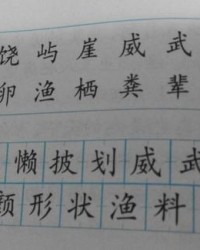 饶屿崖威武
卵渔栖粪辈
懒披划威武
颗形状渔料